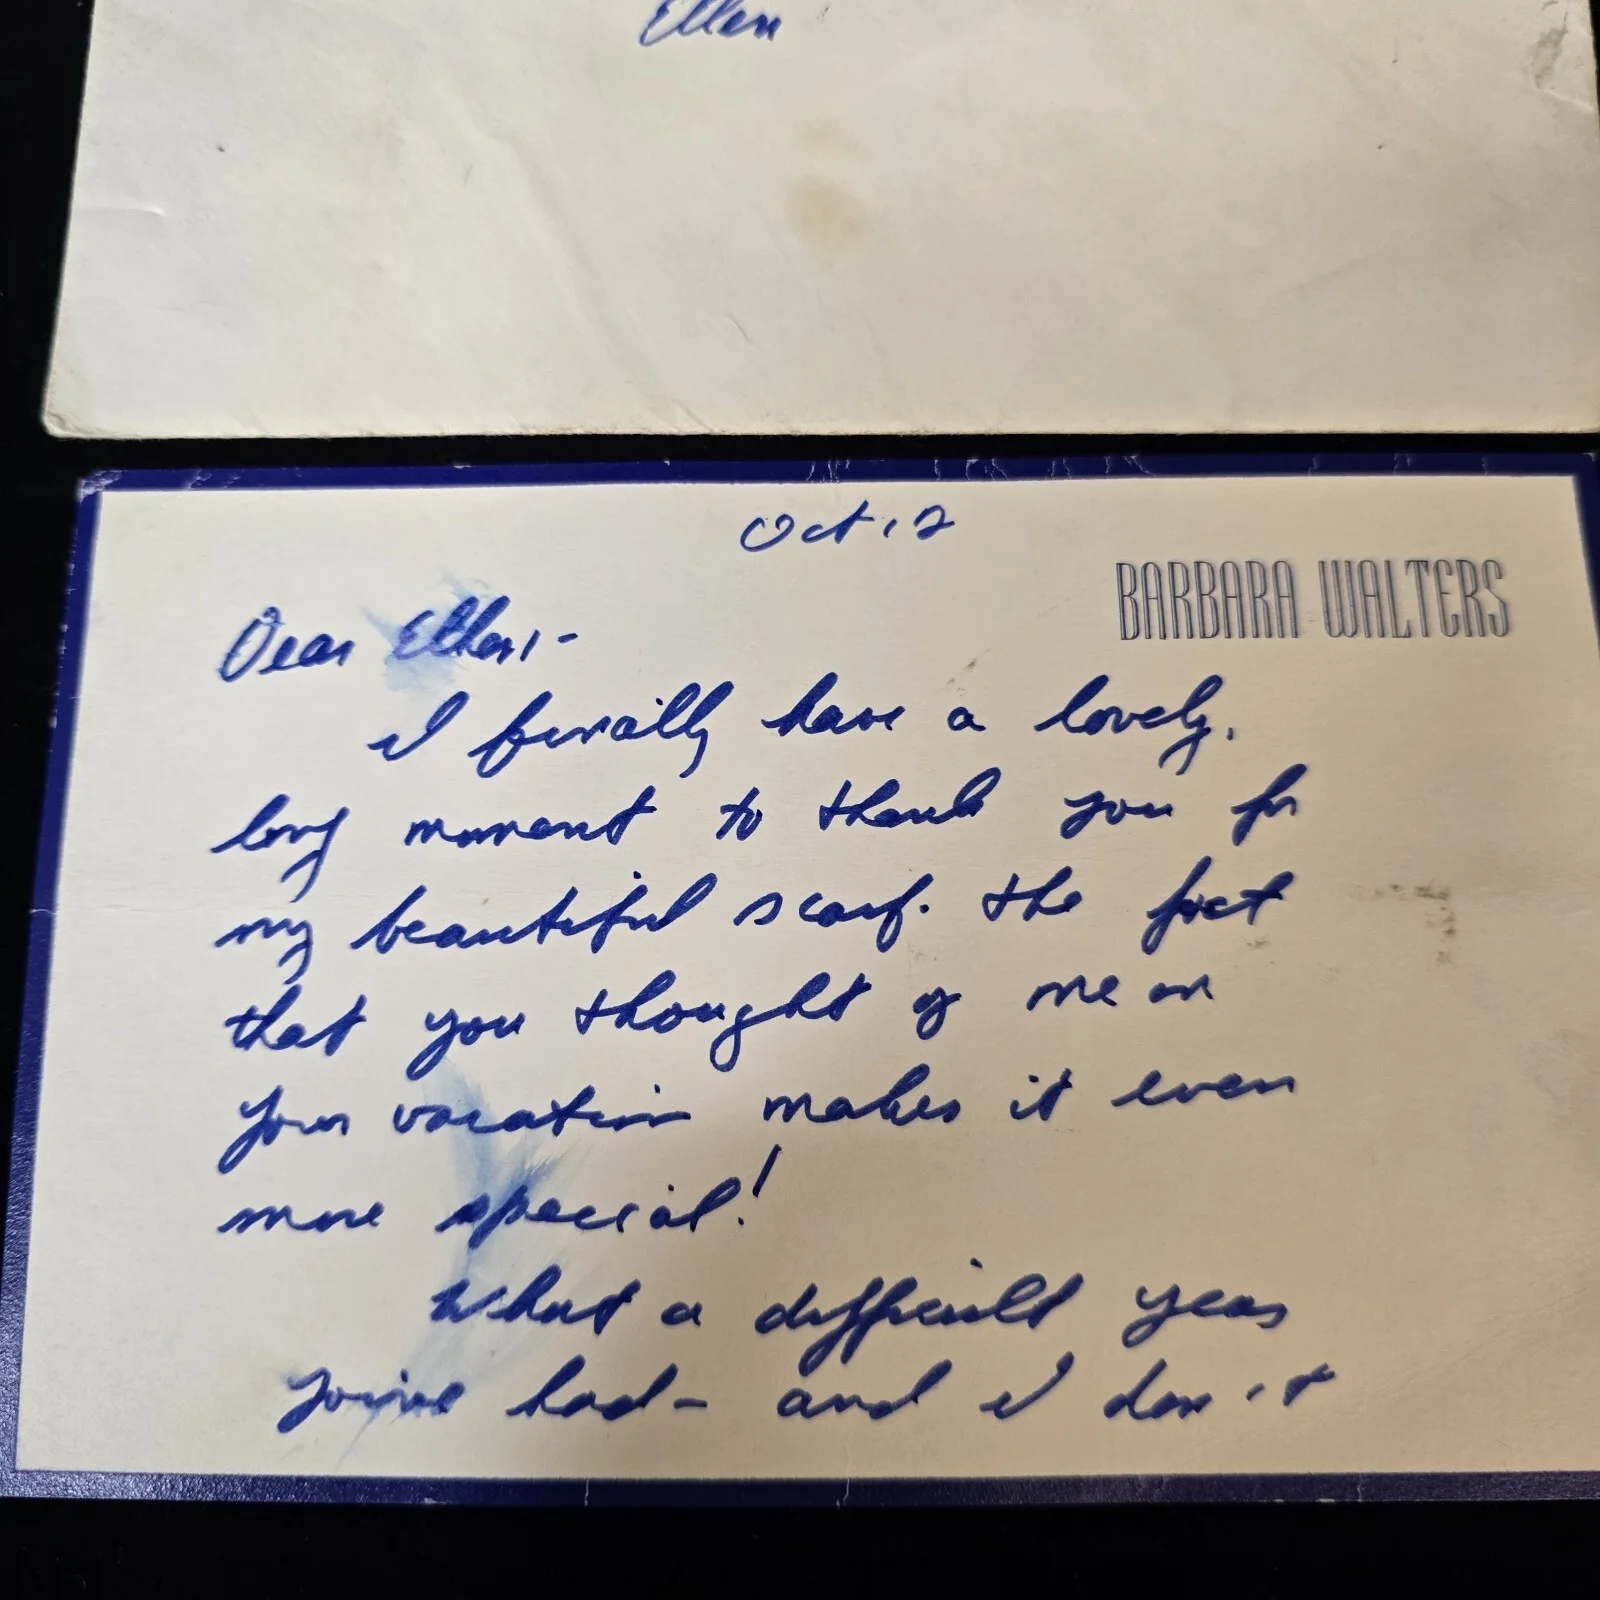 Ellen
Oct 12
BARBARA WALTERS
Dear Ellen,-
I finally have a lovely,
long moment to thank you for
my beautiful scarf. The fact
that you thought of me on
your vacation makes it even
more special!
What a difficult year
you've had - and I don't